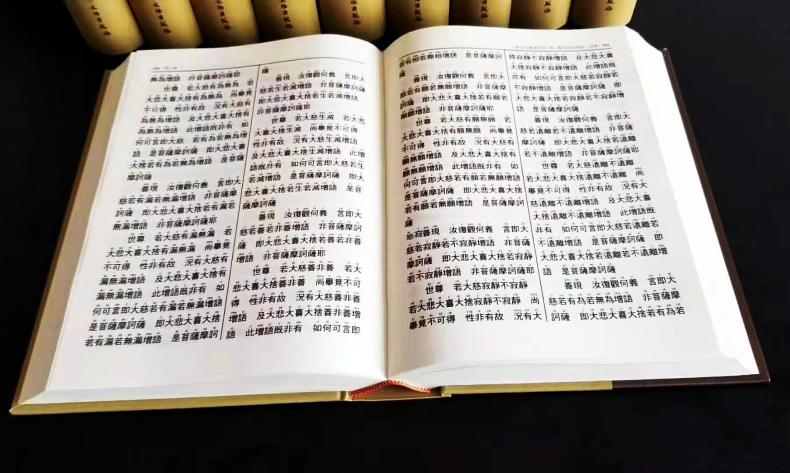 若有相若無相增語 是菩薩摩訶
薩
善現 汝復觀何義 言即大
慈若有願若無願增語 非菩薩摩
訶薩 即大悲大喜大捨若有願若
無願增語 非菩薩摩訶薩耶
世尊 若大慈有願無願 若
大悲大喜大捨有願無願 尚畢竟
不可得 性非有故 況有大慈有
願無願增語 及大悲大喜大捨有
願無願增語 此增語既非有 如
何可言即大慈若有願若無願增語
是菩薩摩訶薩 即大悲大喜大捨
若有願若無願增語 是菩薩摩訶
薩
善現 汝復觀何義 言即大
慈若寂靜若不寂靜增語 非菩薩
摩訶薩 即大悲大喜大捨若寂靜
若不寂靜增語 非菩薩摩訶薩耶
世尊 若大慈寂靜不寂靜
若大悲大喜大捨寂靜不寂靜 尚
畢竟不可得 性非有故 況有大
慈寂靜不寂靜增語 及大悲大喜
大捨寂靜不寂靜增語 此增語既
非有 如何可言即大慈若寂靜若
不寂靜增語 是菩薩摩訶薩 即
大悲大喜大捨若寂靜若不寂靜增
語 是菩薩摩訶薩
善現 汝復觀何義 言即大
慈若遠離若不遠離增語 非菩薩
摩訶薩 即大悲大喜大捨若遠離
若不遠離增語 非菩薩摩訶薩耶
世尊 若大慈遠離不遠離
若大悲大喜大捨遠離不遠離 尚
畢竟不可得 性非有故 況有大
慈遠離不遠離增語 及大悲大喜
大捨遠離不遠離增語 此增語既
非有 如何可言即大慈若遠離若
不遠離增語 是菩薩摩訶薩 即
大悲大喜大捨若遠離若不遠離增
語 是菩薩摩訶薩
善現 汝復觀何義 言即大
慈若有為若無為增語 非菩薩摩
訶薩 即大悲大喜大捨若有為若
無為增語 非菩薩摩訶薩耶
世尊 若大慈有為無為 若
大悲大喜大捨有為無為 尚畢竟
不可得 性非有故 況有大慈有
為無為增語 及大悲大喜大捨有
為無為增語 此增語既非有 如
何可言即大慈若有為若無為增
語 是菩薩摩訶薩 即大悲大喜
大捨若有為若無為增語 是菩薩
摩訶薩
善現 汝復觀何義 言即大
慈若有漏若無漏增語 非菩薩摩
訶薩 即大悲大喜大捨若有漏若
無漏增語 非菩薩摩訶薩耶
世尊 若大慈有漏無漏 若
大悲大喜大捨有漏無漏 尚畢竟
不可得 性非有故 況有大慈有
漏無漏增語 及大悲大喜大捨有
漏無漏增語 此增語既非有 如
何可言即大慈若有漏若無漏增語
是菩薩摩訶薩 即大悲大喜大捨
若有漏若無漏增語 是菩薩摩訶
薩
善現 汝復觀何義 言即大
慈若生若滅增語 非菩薩摩訶薩
即大悲大喜大捨若生若滅增語
非菩薩摩訶薩耶
世尊 若大慈生滅 若大悲
大喜大捨生滅 尚畢竟不可得
性非有故 況有大慈生滅增語
及大悲大喜大捨生滅增語 此增
語既非有 如何可言即大慈若生
若滅增語 是菩薩摩訶薩 即大
悲大喜大捨若生若滅增語 是菩
薩摩訶薩
善現 汝復觀何義 言即大
慈若善若非善增語 非菩薩摩訶
薩 即大悲大喜大捨若善若非善
增語 非菩薩摩訶薩耶
世尊 若大慈善非善 若大
悲大喜大捨善非善 尚畢竟不可
得 性非有故 況有大慈善非善
增語 及大悲大喜大捨善非善增
語 此增語既非有 如何可言即